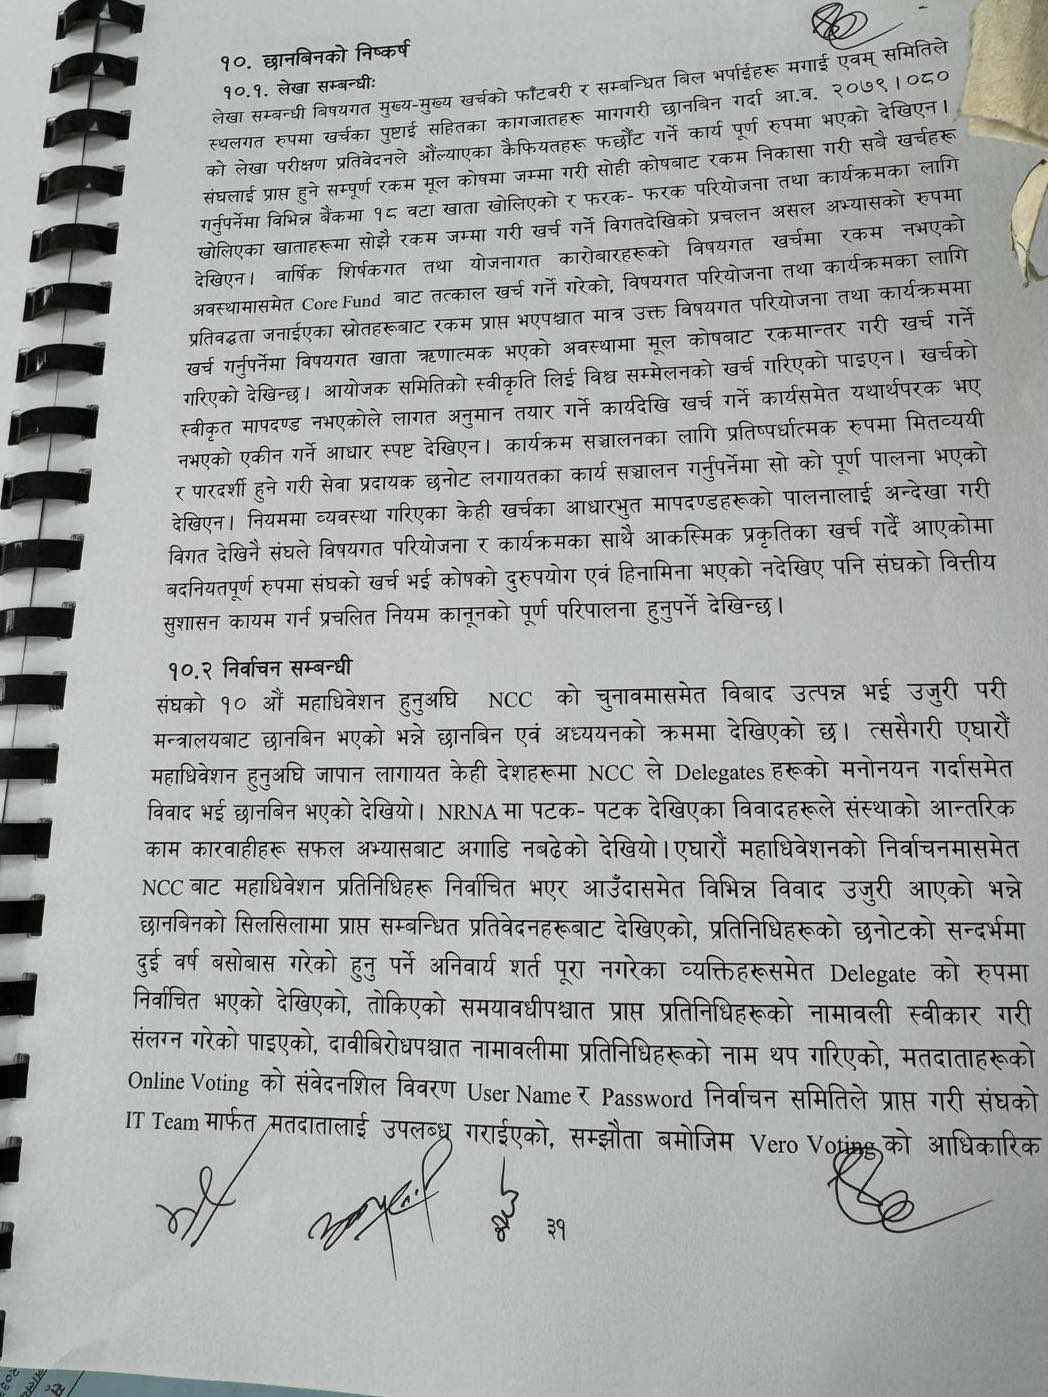 १०. छानबिनको निष्कर्ष
१०.१. लेखा सम्बन्धीः
लेखा सम्बन्धी विषयगत मुख्य-मुख्य खर्चको फाँटवरी र सम्बन्धित विल भर्पाईहरू मगाई एवम् समितिले
स्थलगत रुपमा खर्चका पुष्टाई सहितका कागजातहरू मागगरी छानबिन गर्दा आ.व. २०७९।०८०
को लेखा परीक्षण प्रतिवेदनले औंल्याएका कैफियतहरू फर्छौंट गर्ने कार्य पूर्ण रुपमा भएको देखिएन।
संघलाई प्राप्त हुने सम्पूर्ण रकम मूल कोषमा जम्मा गरी सोही कोषबाट रकम निकासा गरी सबै खर्चहरू
गर्नुपर्नेमा विभिन्न बैंकमा १८ वटा खाता खोलिएको र फरक- फरक परियोजना तथा कार्यक्रमका लागि
खोलिएका खाताहरूमा सोझै रकम जम्मा गरी खर्च गर्ने विगतदेखिको प्रचलन असल अभ्यासको रुपमा
देखिएन। वार्षिक शिर्षकगत तथा योजनागत कारोबारहरूको विषयगत खर्चमा रकम नभएको
अवस्थामासमेत Core Fund बाट तत्काल खर्च गर्ने गरेको, विषयगत परियोजना तथा कार्यक्रमका लागि
प्रतिवद्धता जनाईएका स्रोतहरूबाट रकम प्राप्त भएपश्चात मात्र उक्त विषयगत परियोजना तथा कार्यक्रममा
खर्च गर्नुपर्नेमा विषयगत खाता ऋणात्मक भएको अवस्थामा मूल कोषबाट रकमान्तर गरी खर्च गर्ने
गरिएको देखिन्छ। आयोजक समितिको स्वीकृति लिई विश्व सम्मेलनको खर्च गरिएको पाइएन। खर्चको
स्वीकृत मापदण्ड नभएकोले लागत अनुमान तयार गर्ने कार्यदेखि खर्च गर्ने कार्यसमेत यथार्थपरक भए
नभएको एकीन गर्ने आधार स्पष्ट देखिएन। कार्यक्रम सञ्चालनका लागि प्रतिष्पर्धात्मक रुपमा मितव्ययी
र पारदर्शी हुने गरी सेवा प्रदायक छनोट लगायतका कार्य सञ्चालन गर्नुपर्नेमा सो को पूर्ण पालना भएको
देखिएन। नियममा व्यवस्था गरिएका केही खर्चका आधारभुत मापदण्डहरूको पालनालाई अन्देखा गरी
विगत देखिनै संघले विषयगत परियोजना र कार्यक्रमका साथै आकस्मिक प्रकृतिका खर्च गर्दै आएकोमा
बदनियतपूर्ण रुपमा संघको खर्च भई कोषको दुरुपयोग एवं हिनामिना भएको नदेखिए पनि संघको वित्तीय
सुशासन कायम गर्न प्रचलित नियम कानूनको पूर्ण परिपालना हुनुपर्ने देखिन्छ।
१०.२ निर्वाचन सम्बन्धी
संघको १० औं महाधिवेशन हुनुअघि NCC को चुनावमासमेत विबाद उत्पन्न भई उजुरी परी
मन्त्रालयबाट छानबिन भएको भन्ने छानबिन एवं अध्ययनको क्रममा देखिएको छ। त्ससैगरी एघारौं
महाधिवेशन हुनुअघि जापान लागायत केही देशहरूमा NCC ले Delegates हरूको मनोनयन गर्दासमेत
विवाद भई छानबिन भएको देखियो। NRNA मा पटक- पटक देखिएका विवादहरूले संस्थाको आन्तरिक
काम कारवाहीहरू सफल अभ्यासबाट अगाडि नबढेको देखियो।एघारौं महाधिवेशनको निर्वाचनमासमेत
NCC बाट महाधिवेशन प्रतिनिधिहरू निर्वाचित भएर आउँदासमेत विभिन्न विवाद उजुरी आएको भन्ने
छानबिनको सिलसिलामा प्राप्त सम्बन्धित प्रतिवेदनहरूबाट देखिएको, प्रतिनिधिहरूको छनोटको सन्दर्भमा
दुई वर्ष बसोबास गरेको हुनु पर्ने अनिवार्य शर्त पूरा नगरेका व्यक्तिहरूसमेत Delegate को रुपमा
निर्वाचित भएको देखिएको, तोकिएको समयावधीपश्चात प्राप्त प्रतिनिधिहरूको नामावली स्वीकार गरी
संलग्न गरेको पाइएको, दावीबिरोधपश्चात नामावलीमा प्रतिनिधिहरूको नाम थप गरिएको, मतदाताहरूको
Online Voting को संवेदनशिल विवरण User Name र Password निर्वाचन समितिले प्राप्त गरी संघको
IT Team मार्फत मतदातालाई उपलब्ध गराईएको, सम्झौता बमोजिम Vero Voting को आधिकारिक
३१